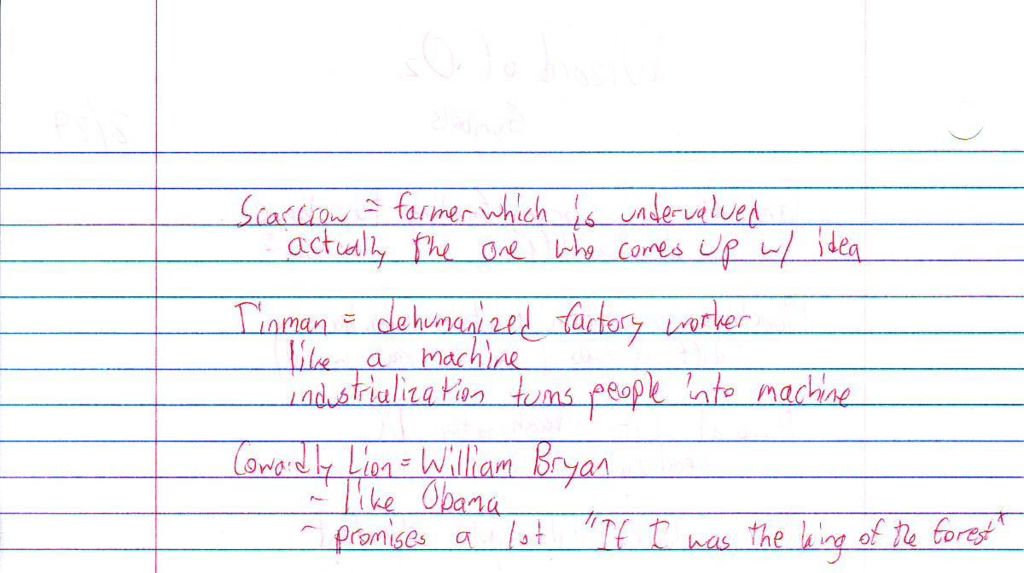 Scarcrow = farmer which is undervalued
actually the one who comes up w/ idea
Tinman = dehumanized factory worker
like a machine
industrialization turns people into machine
Cowardly Lion = William Bryan
- like Obama
- promises a lot "If I was the king of the forest"